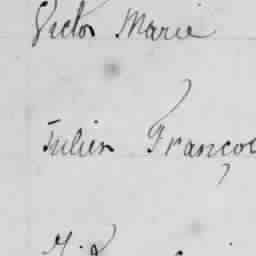 Victor Marie
Julien Françoi